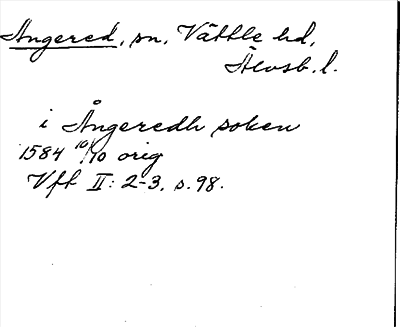 Angered, sn, Vättle hd,
Älvsb. l.
i Ångeredh soken
1584 10/10 orig
Vff II: 2-3, s. 98.